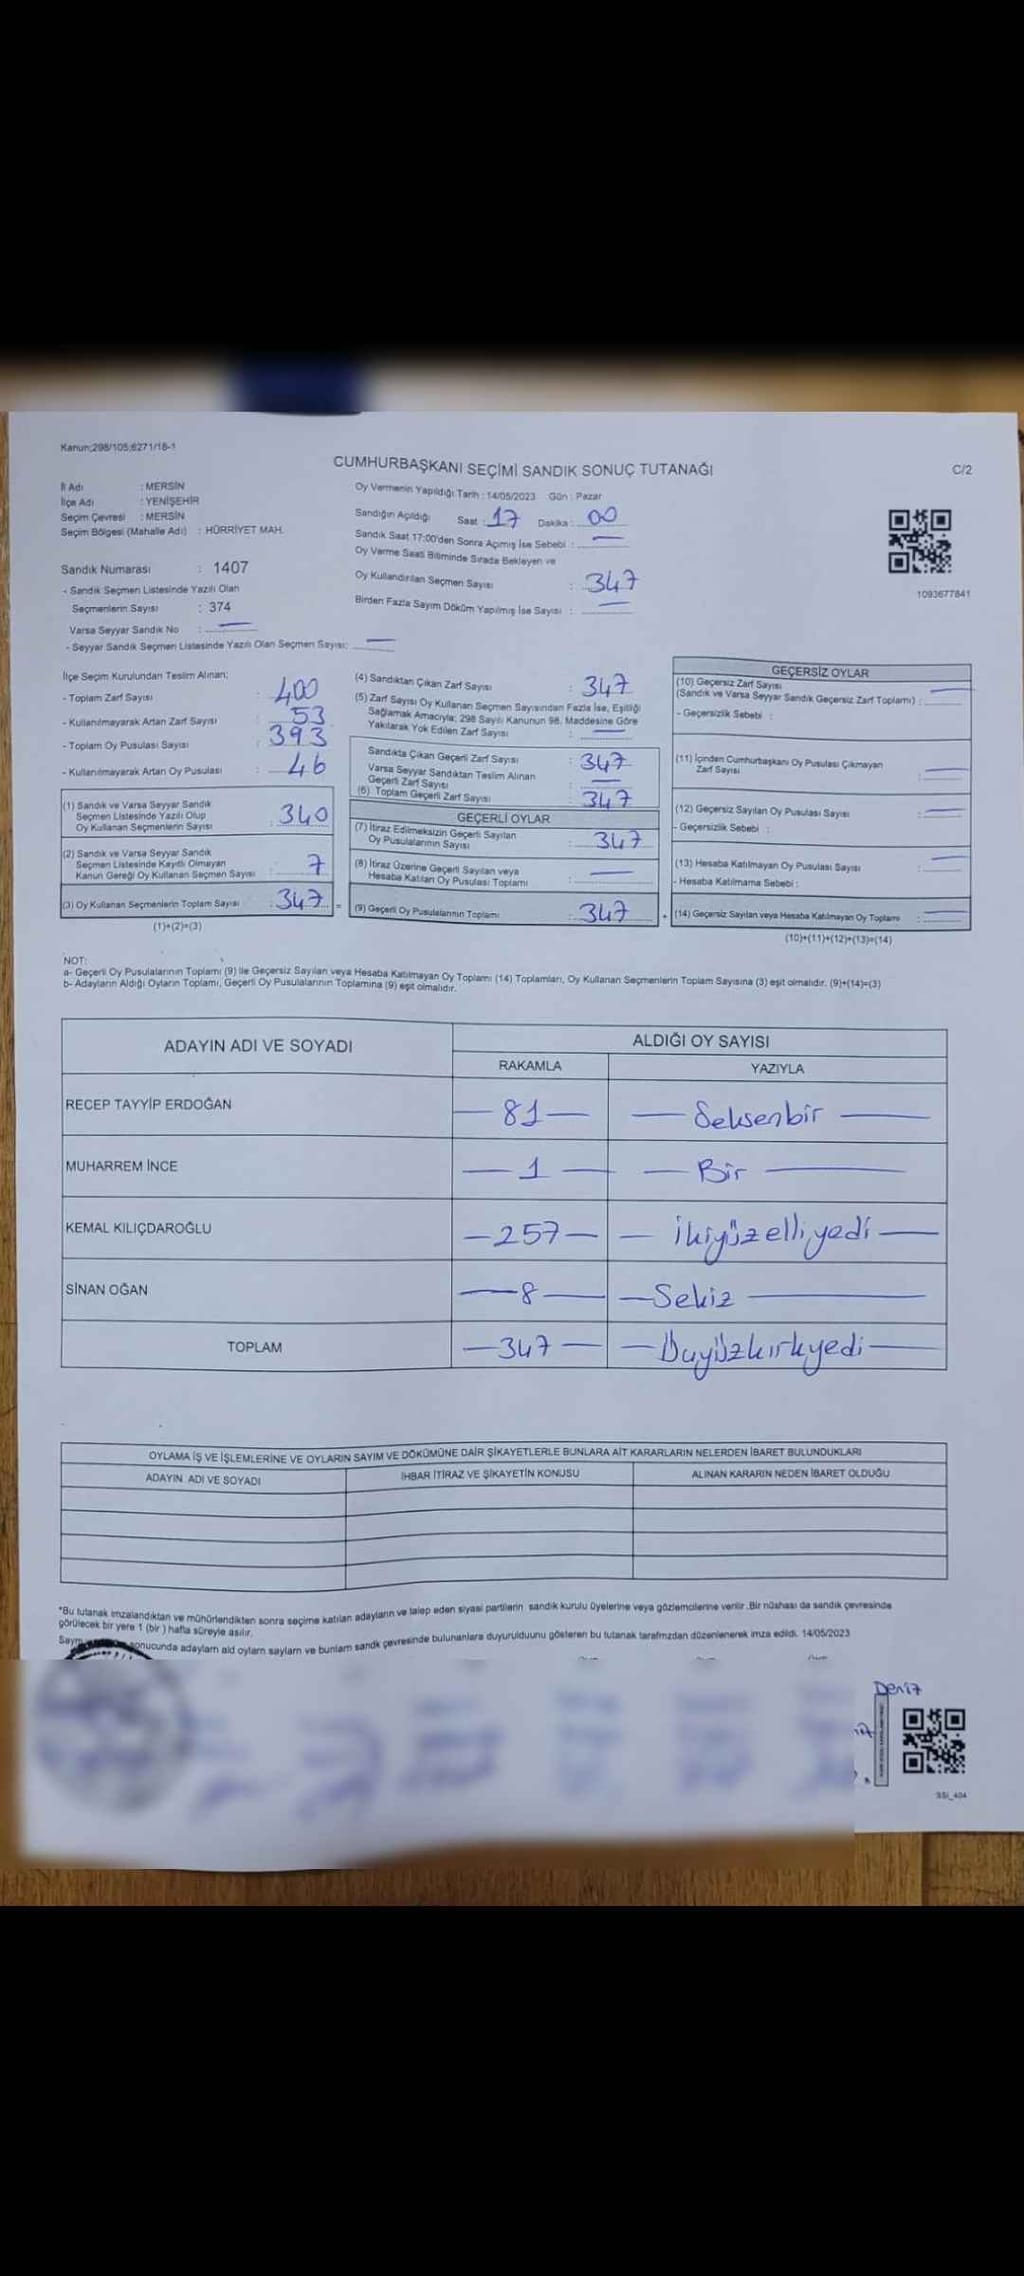 Kanun;298/105;6271/18-1
CUMHURBAŞKANI SEÇİMİ SANDIK SONUÇ TUTANAĞI
C/2
İl Adı : MERSİN
İlçe Adı : YENİŞEHİR
Seçim Çevresi : MERSİN
Seçim Bölgesi (Mahalle Adı) : HÜRRİYET MAH.
Sandık Numarası : 1407
- Sandık Seçmen Listesinde Yazılı Olan
Seçmenlerin Sayısı : 374
Varsa Seyyar Sandık No : —
- Seyyar Sandık Seçmen Listesinde Yazılı Olan Seçmen Sayısı: —
Oy Vermenin Yapıldığı Tarih : 14/05/2023 Gün : Pazar
Sandığın Açıldığı Saat : 17 Dakika : 00
Sandık Saat 17:00'den Sonra Açımış İse Sebebi : —
Oy Verme Saati Bitiminde Sırada Bekleyen ve
Oy Kullandırılan Seçmen Sayısı : 347
Birden Fazla Sayım Döküm Yapılmış İse Sayısı : —
1093677841
İlçe Seçim Kurulundan Teslim Alınan;
- Toplam Zarf Sayısı : 400
- Kullanılmayarak Artan Zarf Sayısı : 53
- Toplam Oy Pusulası Sayısı : 393
- Kullanılmayarak Artan Oy Pusulası : 46
(1) Sandık ve Varsa Seyyar Sandık
Seçmen Listesinde Yazılı Olup
Oy Kullanan Seçmenlerin Sayısı : 340
(2) Sandık ve Varsa Seyyar Sandık
Seçmen Listesinde Kayıtlı Olmayan
Kanun Gereği Oy Kullanan Seçmen Sayısı : 7
(3) Oy Kullanan Seçmenlerin Toplam Sayısı : 347 =
(1)+(2)=(3)
(4) Sandıktan Çıkan Zarf Sayısı : 347
(5) Zarf Sayısı Oy Kullanan Seçmen Sayısından Fazla İse, Eşitliği
Sağlamak Amacıyla; 298 Sayılı Kanunun 98. Maddesine Göre
Yakılarak Yok Edilen Zarf Sayısı : —
Sandıkta Çıkan Geçerli Zarf Sayısı : 347
Varsa Seyyar Sandıktan Teslim Alınan
Geçerli Zarf Sayısı : —
(6) Toplam Geçerli Zarf Sayısı : 347
GEÇERLİ OYLAR
(7) İtiraz Edilmeksizin Geçerli Sayılan
Oy Pusulalarının Sayısı : 347
(8) İtiraz Üzerine Geçerli Sayılan veya
Hesaba Katılan Oy Pusulası Toplamı : —
(9) Geçerli Oy Pusulalarının Toplamı : 347 +
GEÇERSİZ OYLAR
(10) Geçersiz Zarf Sayısı
(Sandık ve Varsa Seyyar Sandık Geçersiz Zarf Toplamı) : —
- Geçersizlik Sebebi :
(11) İçinden Cumhurbaşkanı Oy Pusulası Çıkmayan
Zarf Sayısı : —
(12) Geçersiz Sayılan Oy Pusulası Sayısı : —
- Geçersizlik Sebebi :
(13) Hesaba Katılmayan Oy Pusulası Sayısı : —
- Hesaba Katılmama Sebebi :
(14) Geçersiz Sayılan veya Hesaba Katılmayan Oy Toplamı : —
(10)+(11)+(12)+(13)=(14)
NOT:
a- Geçerli Oy Pusulalarının Toplamı (9) ile Geçersiz Sayılan veya Hesaba Katılmayan Oy Toplamı (14) Toplamları, Oy Kullanan Seçmenlerin Toplam Sayısına (3) eşit olmalıdır. (9)+(14)=(3)
b- Adayların Aldığı Oyların Toplamı, Geçerli Oy Pusulalarının Toplamına (9) eşit olmalıdır.
ADAYIN ADI VE SOYADI ALDIĞI OY SAYISI
RAKAMLA YAZIYLA
RECEP TAYYİP ERDOĞAN —81— — Seksenbir —
MUHARREM İNCE —1— — Bir —
KEMAL KILIÇDAROĞLU —257— — ikiyüzelliyedi —
SİNAN OĞAN —8— —Sekiz —
TOPLAM —347— —Üçyüzkırkyedi—
OYLAMA İŞ VE İŞLEMLERİNE VE OYLARIN SAYIM VE DÖKÜMÜNE DAİR ŞİKAYETLERLE BUNLARA AİT KARARLARIN NELERDEN İBARET BULUNDUKLARI
ADAYIN ADI VE SOYADI İHBAR İTİRAZ VE ŞİKAYETİN KONUSU ALINAN KARARIN NEDEN İBARET OLDUĞU
*Bu tutanak imzalandıktan ve mühürlendikten sonra seçime katılan adayların ve talep eden siyasi partilerin sandık kurulu üyelerine veya gözlemcilerine verilir. Bir nüshası da sandık çevresinde
görülecek bir yere 1 (bir) hafta süreyle asılır.
sonucunda adayların ald oyların sayların ve bunların sandk çevresinde bulunanlara duyurulduunu gösteren bu tutanak tarafmzdan düzenlenerek imza edildi. 14/05/2023
Deniz
SSİ_404